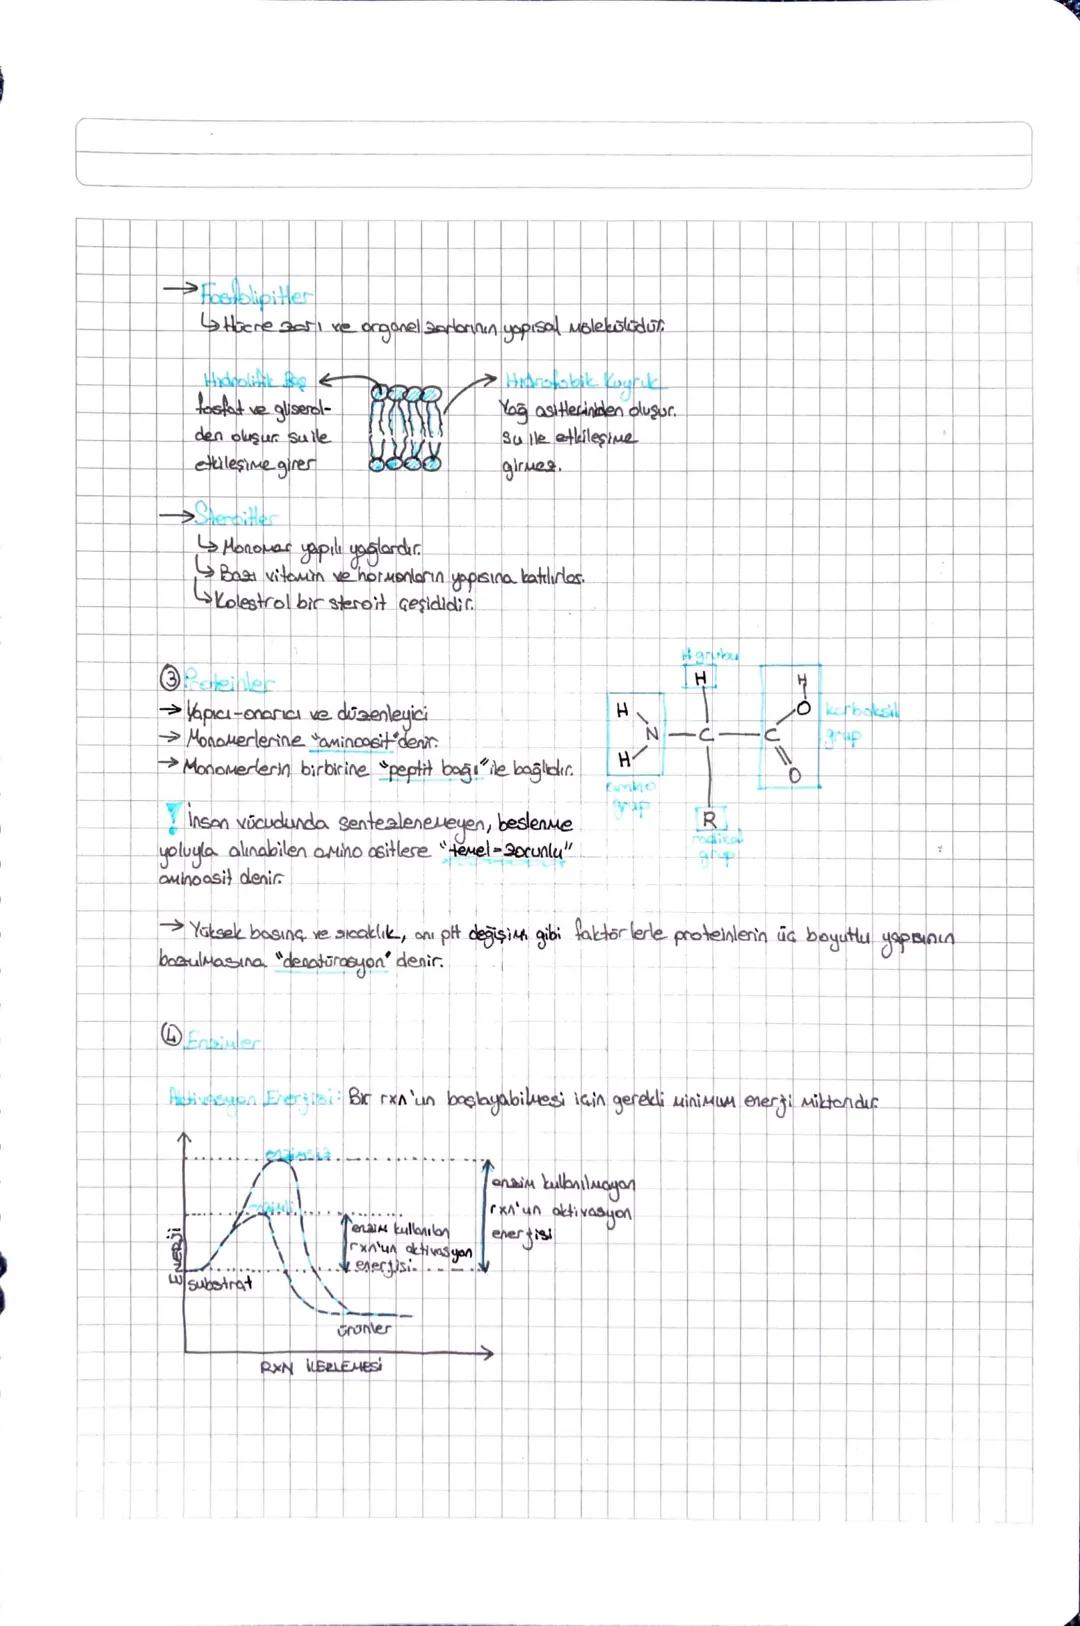 → Fosfolipitler
↳ Hücre zarı ve organel zarlarının yapısal molekülüdür.
Hidrolifik Baş
fosfat ve gliserol-
den oluşur. su ile
etkileşime girer
Hidrofobik Kuyruk
Yağ asitlerinden oluşur.
su ile etkileşime
girmez.
→ Steroitler
↳ Monomer yapılı yağlardır.
↳ Bazı vitamin ve hormonların yapısına katılırlar.
↳ Kolestrol bir steroit çeşididir.
③ Proteinler
→ Yapıcı-onarıcı ve düzenleyici
→ Monomerlerine "aminoasit" denir.
→ Monomerlerin birbirine "peptit bağı" ile bağlıdır.
H grubu
H
H
N
H
C
C
H
O
O
R
karboksil
grup
amino
grup
radikal
grup
! İnsan vücudunda sentezlenemeyen, beslenme
yoluyla alınabilen amino asitlere "temel=zorunlu"
aminoasit denir.
→ Yüksek basınç ve sıcaklık, ani pH değişim gibi faktörlerle proteinlerin üç boyutlu yapısının
bozulmasına "denatürasyon" denir.
④ Enzimler
Aktivasyon Enerjisi: Bir rxn'un başlayabilmesi için gerekli minimum enerji miktarıdır.
enzimsiz
enzimli
enzim kullanılmayan
rxn'un aktivasyon
enerjisi
enzim kullanılan
rxn'un aktivasyon
enerjisi
ENERJİ
substrat
ürünler
RXN İLERLEMESİ